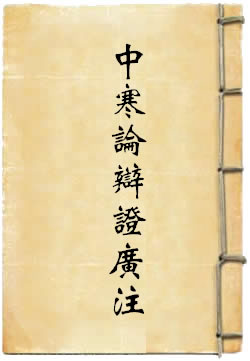 中寒論辯證廣注